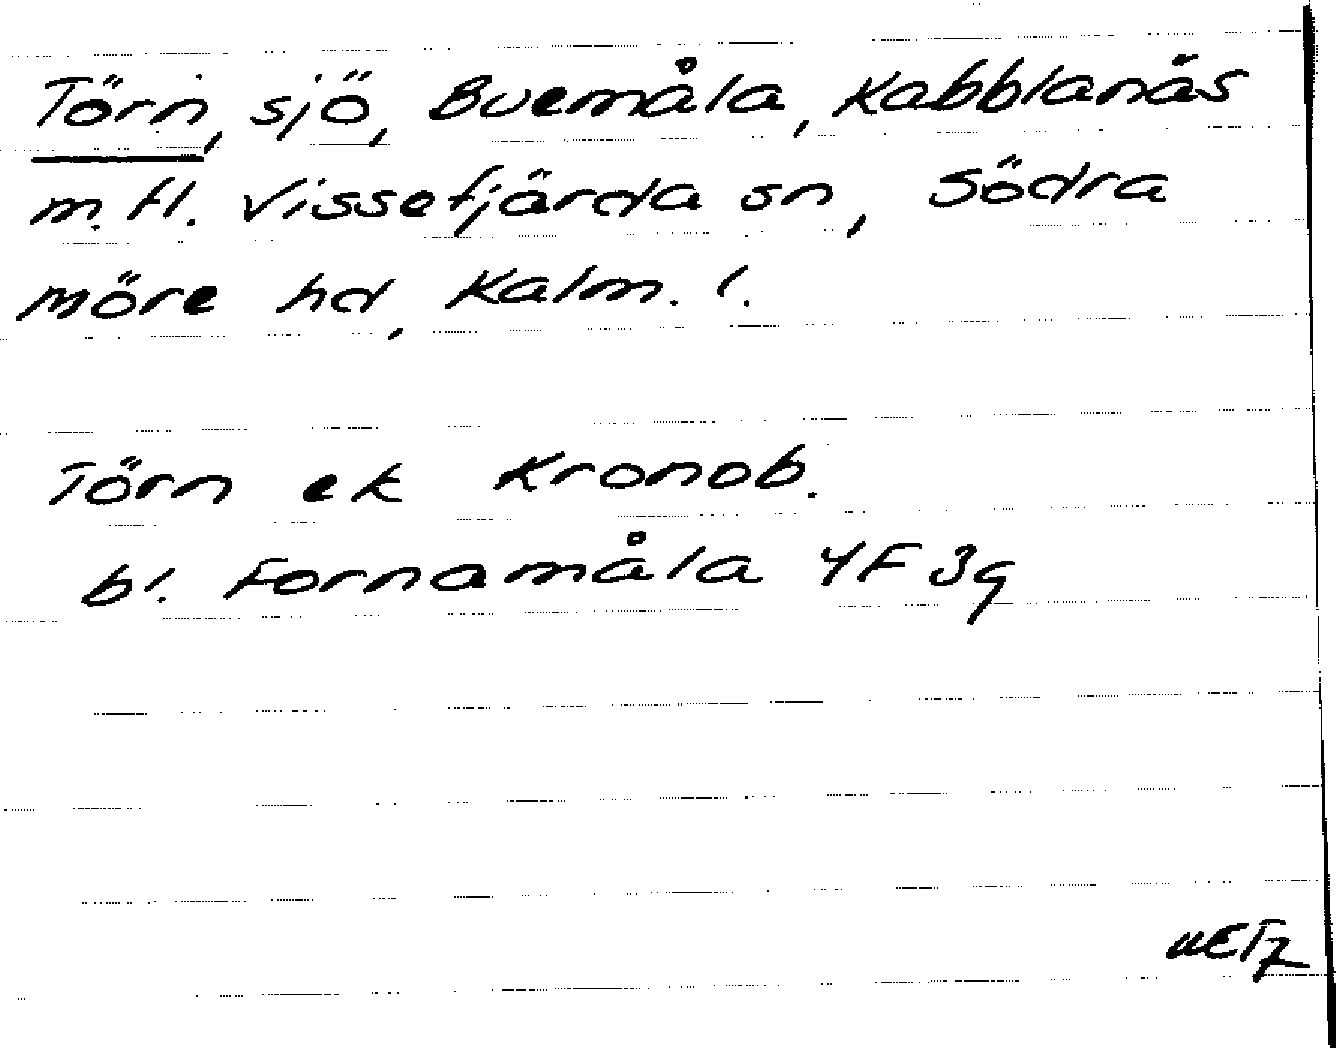 Törn, sjö, Buemåla, Kabblanäs
m.fl. Vissefjärda sn, Södra
möre hd, Kalm. l.
Törn ek Kronob.
bl. Fornamåla 4F 3g